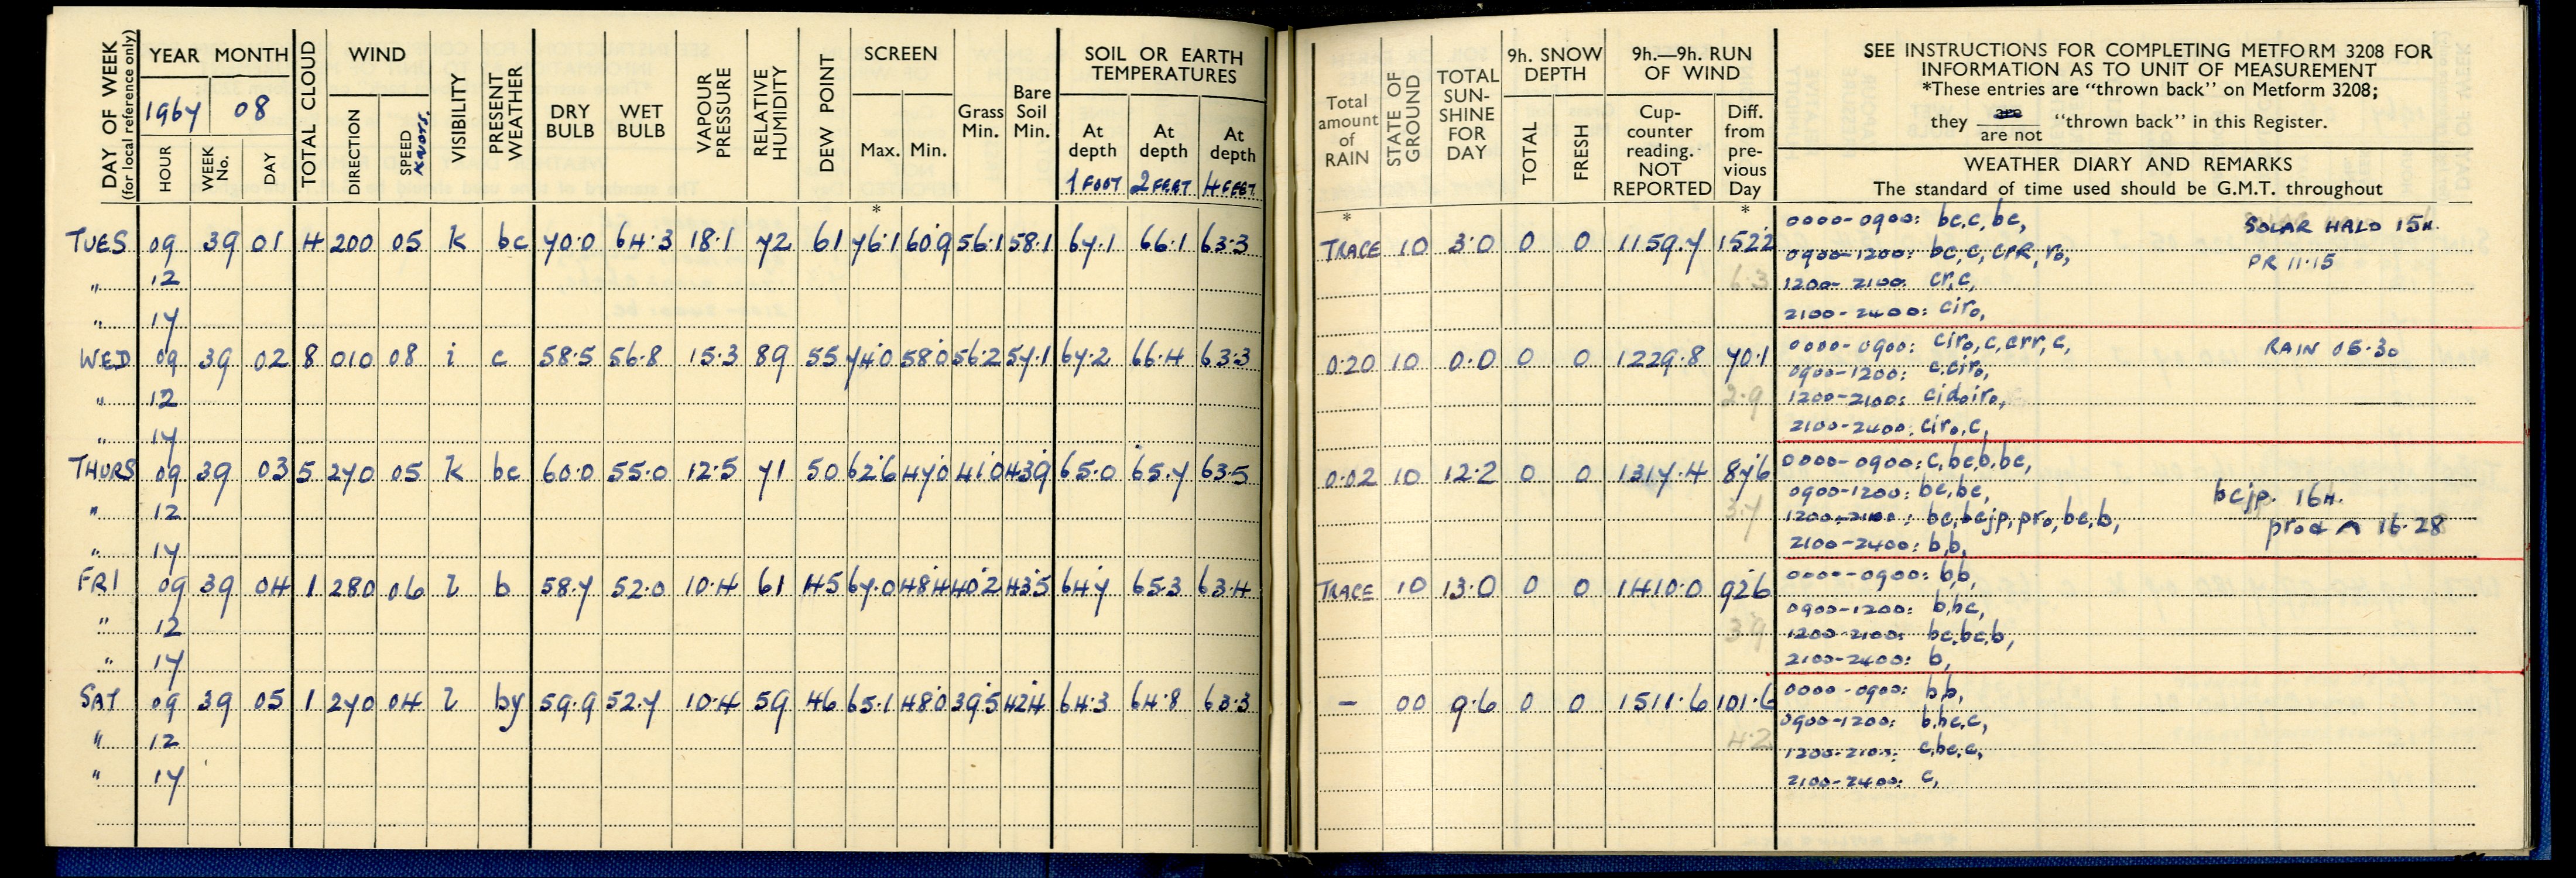 DAY OF WEEK (for local reference only)
YEAR MONTH TOTAL CLOUD WIND VISIBILITY PRESENT WEATHER DRY BULB WET BULB VAPOUR PRESSURE RELATIVE HUMIDITY DEW POINT SCREEN Grass Min. Bare Soil Min. SOIL OR EARTH TEMPERATURES
1967 08
HOUR WEEK No. DAY DIRECTION SPEED KNOTS. Max. Min. At depth At depth At depth
1 FOOT 2 FEET 4 FEET
*
TUES 09 39 01 4 200 05 k bc 70.0 64.3 18.1 72 61 76.1 60.9 56.1 58.1 67.1 66.1 63.3
" 12
" 17
WED 09 39 02 8 010 08 i c 58.5 56.8 15.3 89 55 74.0 58.0 56.2 57.1 67.2 66.4 63.3
" 12
" 17
THURS 09 39 03 5 270 05 k bc 60.0 55.0 12.5 71 50 62.6 47.0 41.0 43.9 65.0 65.7 63.5
" 12
" 17
FRI 09 39 04 1 280 06 l b 58.7 52.0 10.4 61 45 67.0 48.4 40.2 43.5 64.7 65.3 63.4
" 12
" 17
SAT 09 39 05 1 270 04 l by 59.9 52.7 10.4 59 46 65.1 48.0 39.5 42.4 64.3 64.8 63.3
" 12
" 17
Total amount of RAIN STATE OF GROUND TOTAL SUN-SHINE FOR DAY 9h. SNOW DEPTH 9h.—9h. RUN OF WIND
TOTAL FRESH Cup-counter reading. NOT REPORTED Diff. from pre-vious Day
SEE INSTRUCTIONS FOR COMPLETING METFORM 3208 FOR
INFORMATION AS TO UNIT OF MEASUREMENT
*These entries are "thrown back" on Metform 3208;
they are / are not "thrown back" in this Register.
WEATHER DIARY AND REMARKS
The standard of time used should be G.M.T. throughout
* *
TRACE 10 3.0 0 0 1159.7 152.2
6.3
0000-0900: bc,c,bc, SOLAR HALO 15H.
0900-1200: bc,c,cPR,ro, PR 11.15
1200-2100: cr,c,
2100-2400: ciro,
0.20 10 0.0 0 0 1229.8 70.1
2.9
0000-0900: ciro,c,crr,c, RAIN 05.30
0900-1200: c,ciro,
1200-2100: cidoiro,
2100-2400: ciro,c,
0.02 10 12.2 0 0 1317.4 87.6
3.7
0000-0900: c,bc,b,bc,
0900-1200: bc,bc, bcjp. 16H.
1200-2100: bc,bcjp,pro,bc,b, 16.28
2100-2400: b,b,
TRACE 10 13.0 0 0 1410.0 92.6
3.9
0000-0900: b,b,
0900-1200: b,bc,
1200-2100: bc,bc,b,
2100-2400: b,
— 00 9.6 0 0 1511.6 101.6
4.2
0000-0900: b,b,
0900-1200: b,bc,c,
1200-2100: c,bc,c,
2100-2400: c,